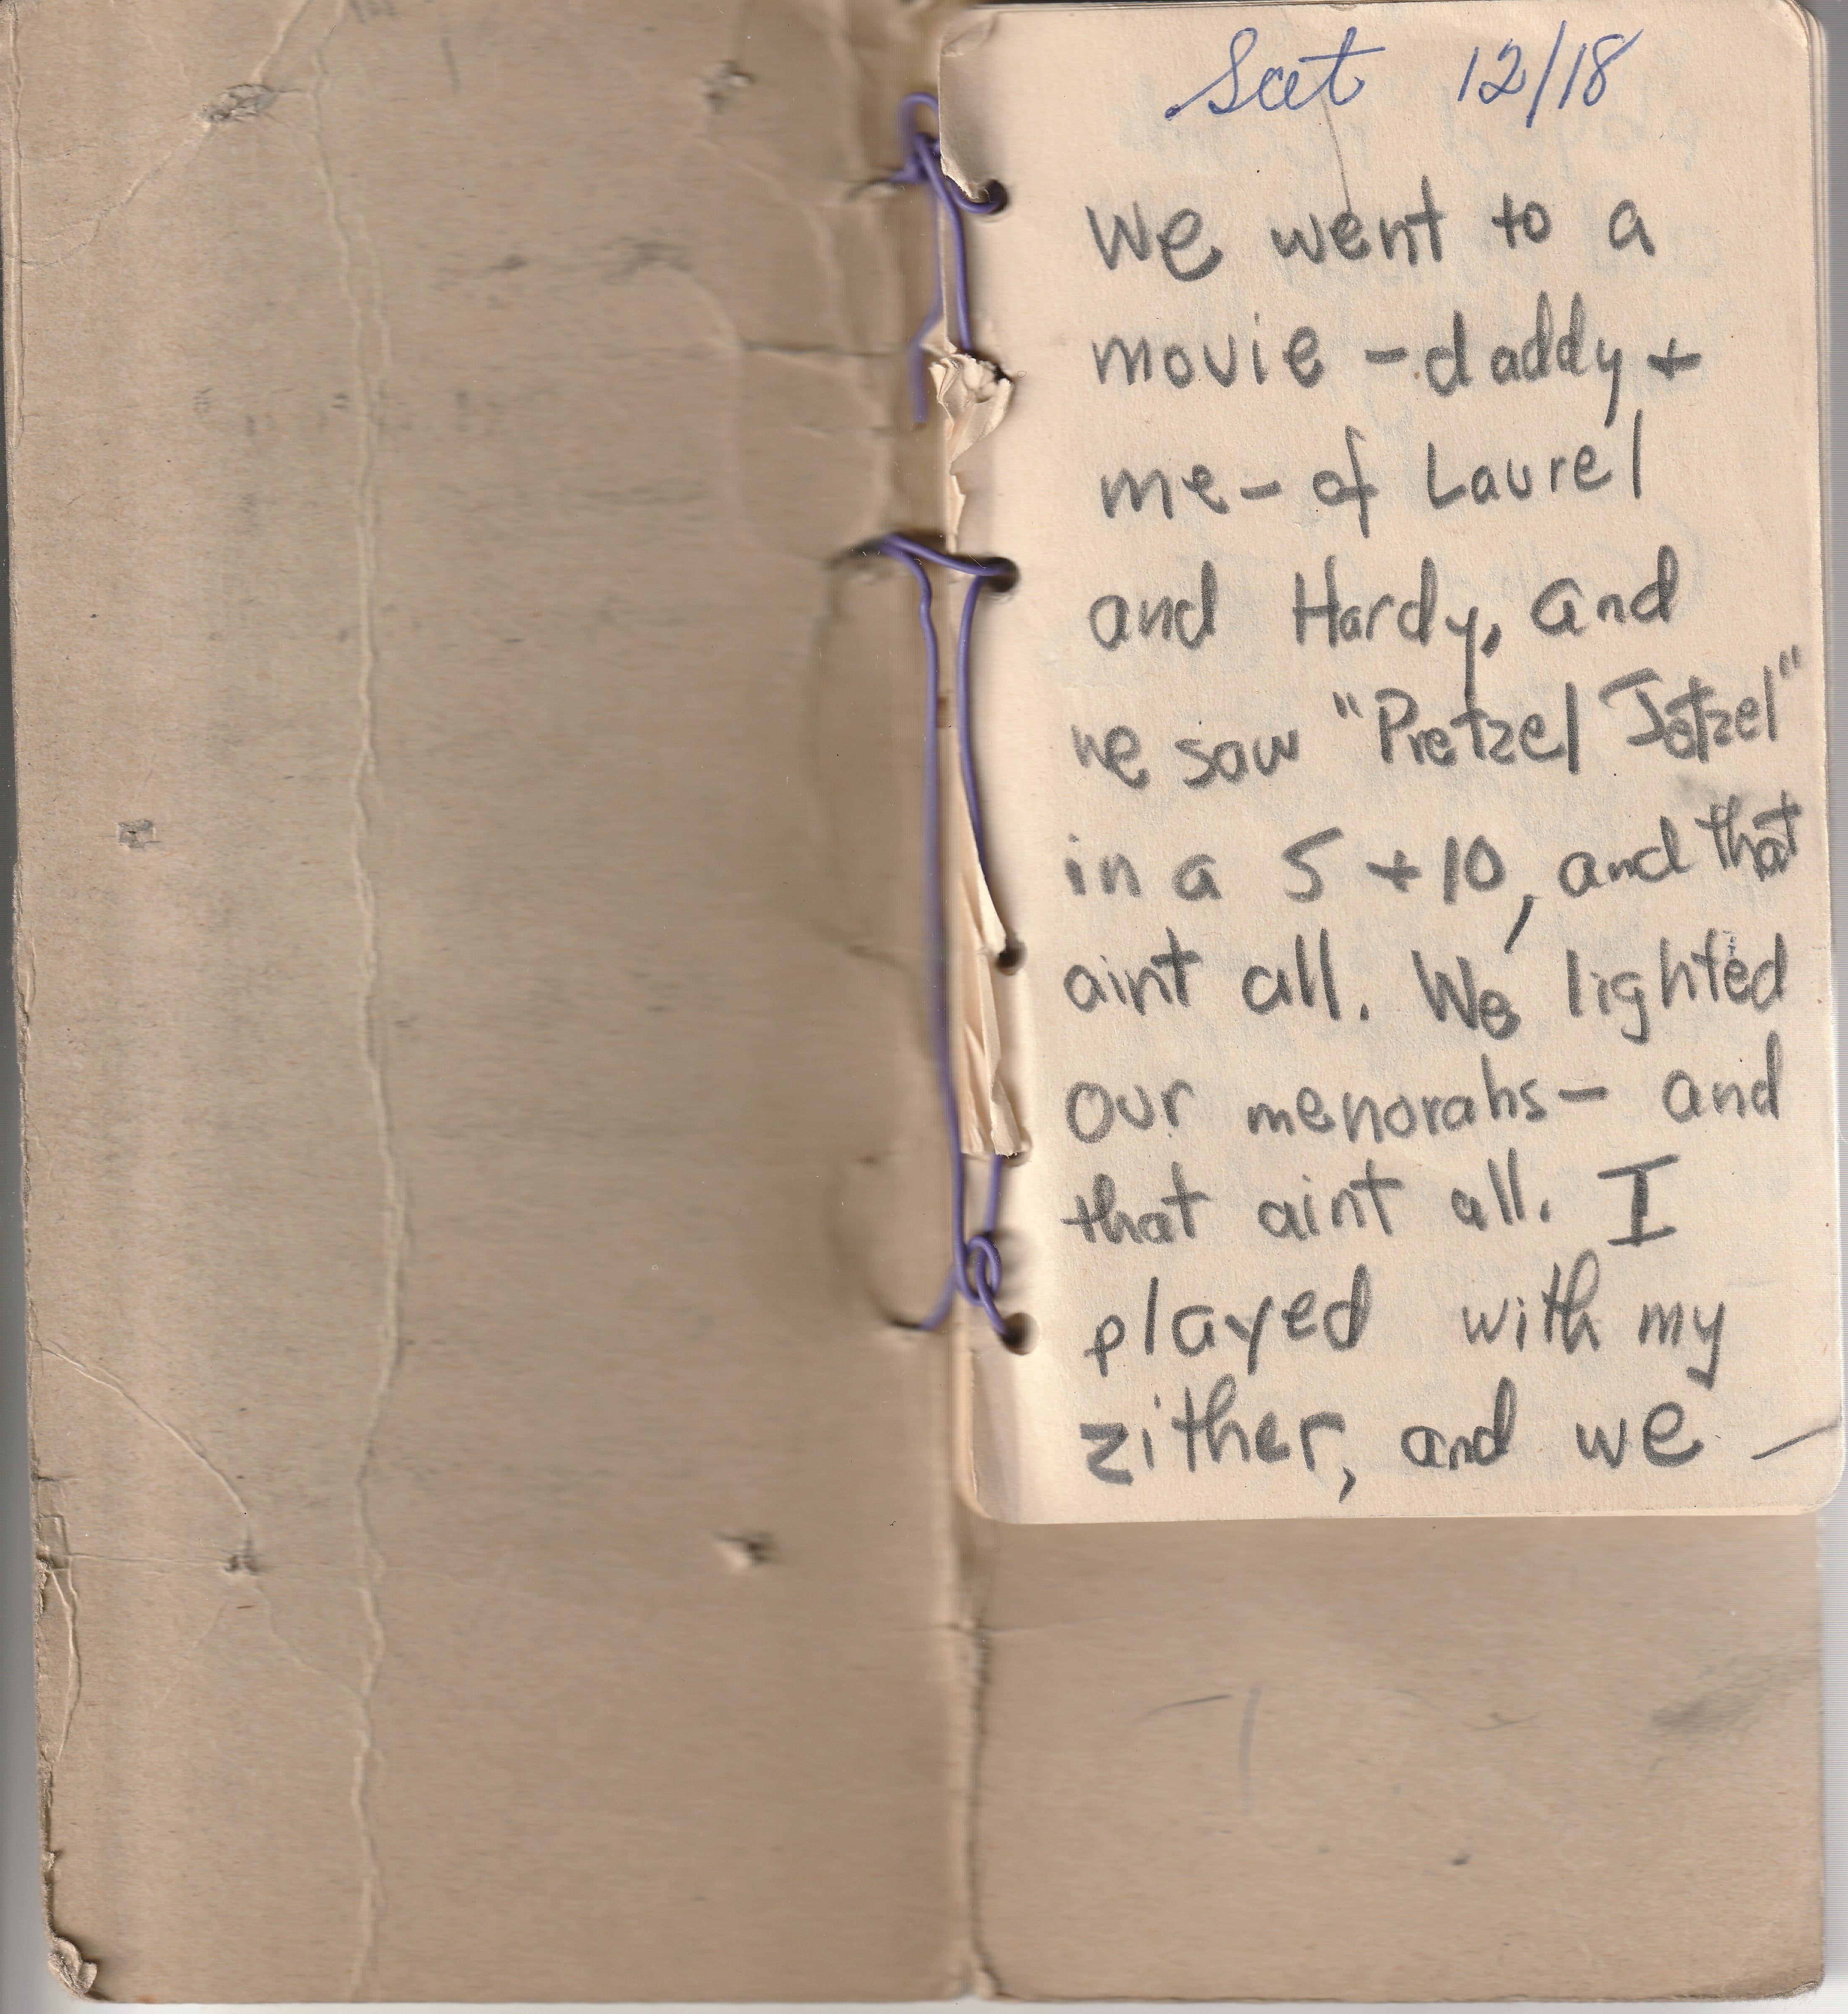 Sat 12/18
We went to a
movie - daddy +
me - of Laurel
and Hardy, and
we saw "Pretzel Jetzel"
in a 5 + 10, and that
aint all. We lighted
our menorahs - and
that aint all. I
played with my
zither, and we -